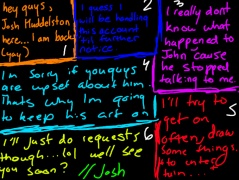 hey guys,
Josh Huddelston
here... I am back
(yay)
1
I guess I
will be handling
his account
till further
notice
2
I really dont
know what
happened to
John cause
he stopped
talking to me.
3
Im sorry if you guys
are upset about him.
Thats why Im going
to keep his art on
4
I'll try to
get on
often, draw
some things,
to
him...
5
I'll just do requests
though...lol well see
you soon?
//Josh
6